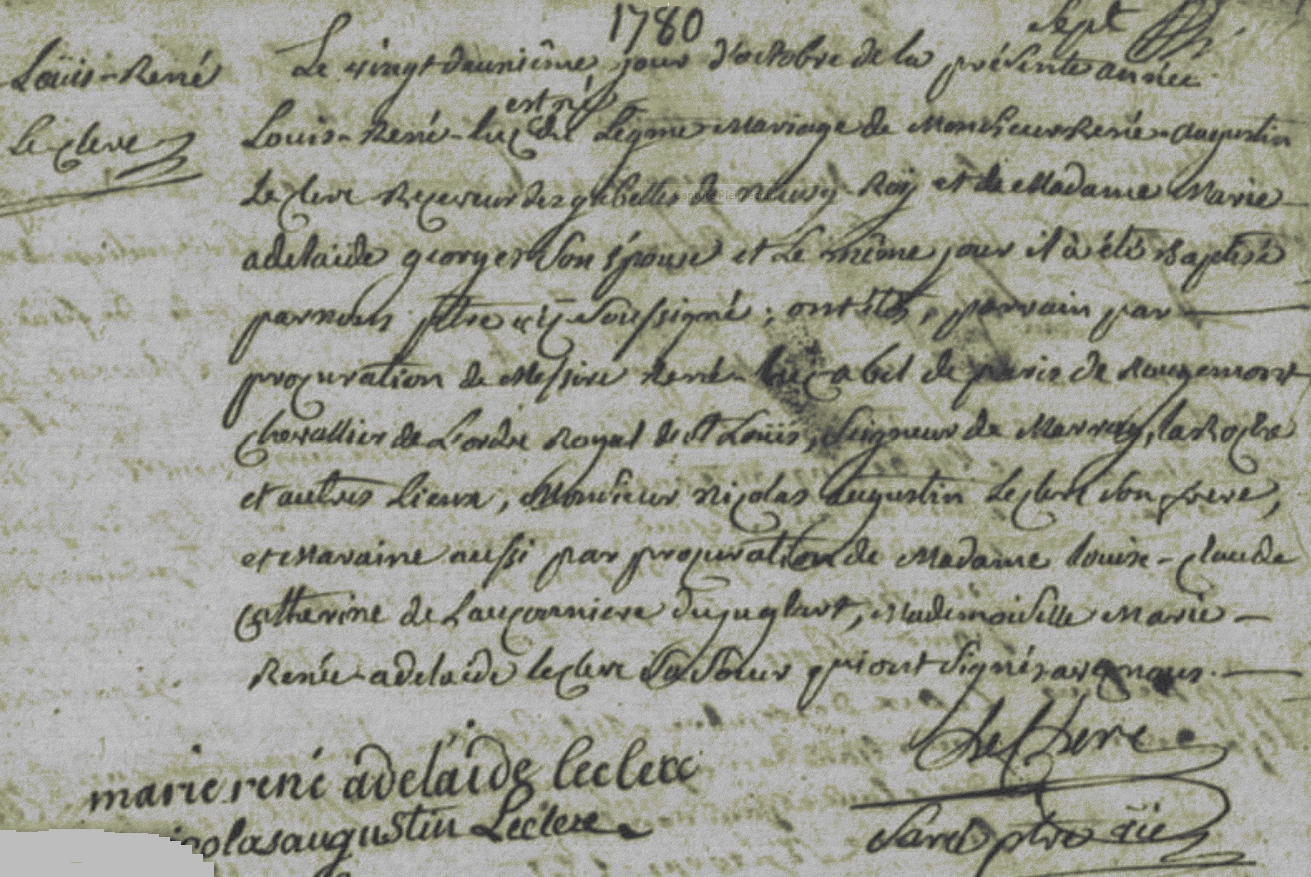 1780
Sept
Louis-René
Le Clerc
Le vingt deunième jour d'octobre de la présente année
est né
Louis-René-Luc du Légme Mariage de Monsieur René-augustin
Le Clerc Receveur des gabelles de neuvy-Roy et de Madame Marie
adelaide georget Son épouse et Le même jour il à été Baptisé
par nous ptre Soussigné ; ont étés, parrain par
procuration de Messire René-Luc abel de paris de Rougemont
chevallier de L'ordre Royal de St Louis, Seigneur de Marray, la Roche
et autres Lieux, Monsieur nicolas augustin Leclerc Son frere,
et Maraine aussi par procuration de Madame louise-Claude
Catherine de Lauçonniere dujuglart, Mademoiselle Marie
Renée-adelaide leclerc Sa Soeur qui ont Signés avec nous.
LeClerc
marie rené adelaïde leclerc
nicolas augustin Leclerc
ptre